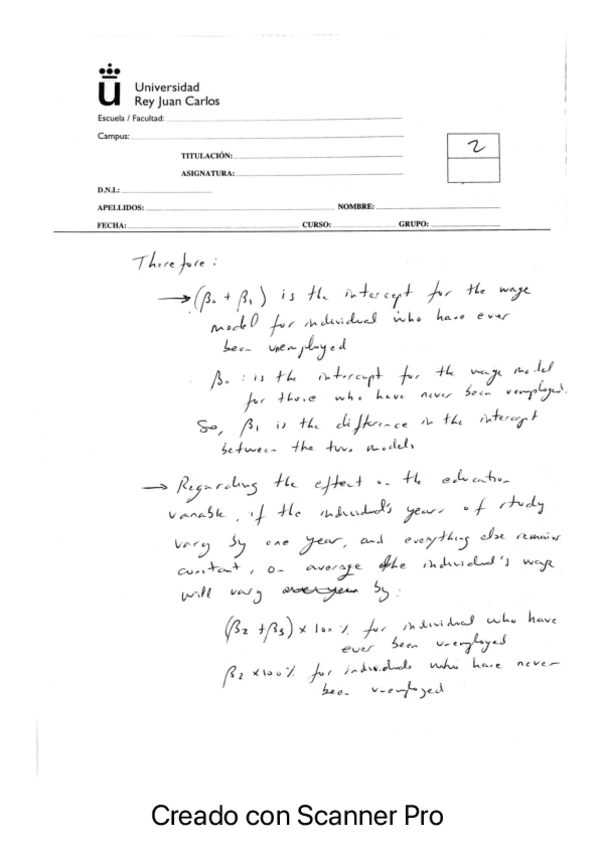 Universidad
Rey Juan Carlos
Escuela / Facultad:
Campus:
2
TITULACIÓN:
ASIGNATURA:
D.N.I.:
APELLIDOS: NOMBRE:
FECHA: CURSO: GRUPO:
Therefore:
→ (β₀ + β₁) is the intercept for the wage
model for individual who have ever
been unemployed
β₀ : is the intercept for the wage model
for those who have never been unemployed.
So, β₁ is the difference in the intercept
between the two models
→ Regarding the effect on the education
variable, if the individual's years of study
vary by one year, and everything else remains
constant, on average the individual's wage
will vary by:
(β₂ + β₃) × 100 % for individual who have
ever been unemployed
β₂ × 100 % for individuals who have never
been unemployed
Creado con Scanner Pro